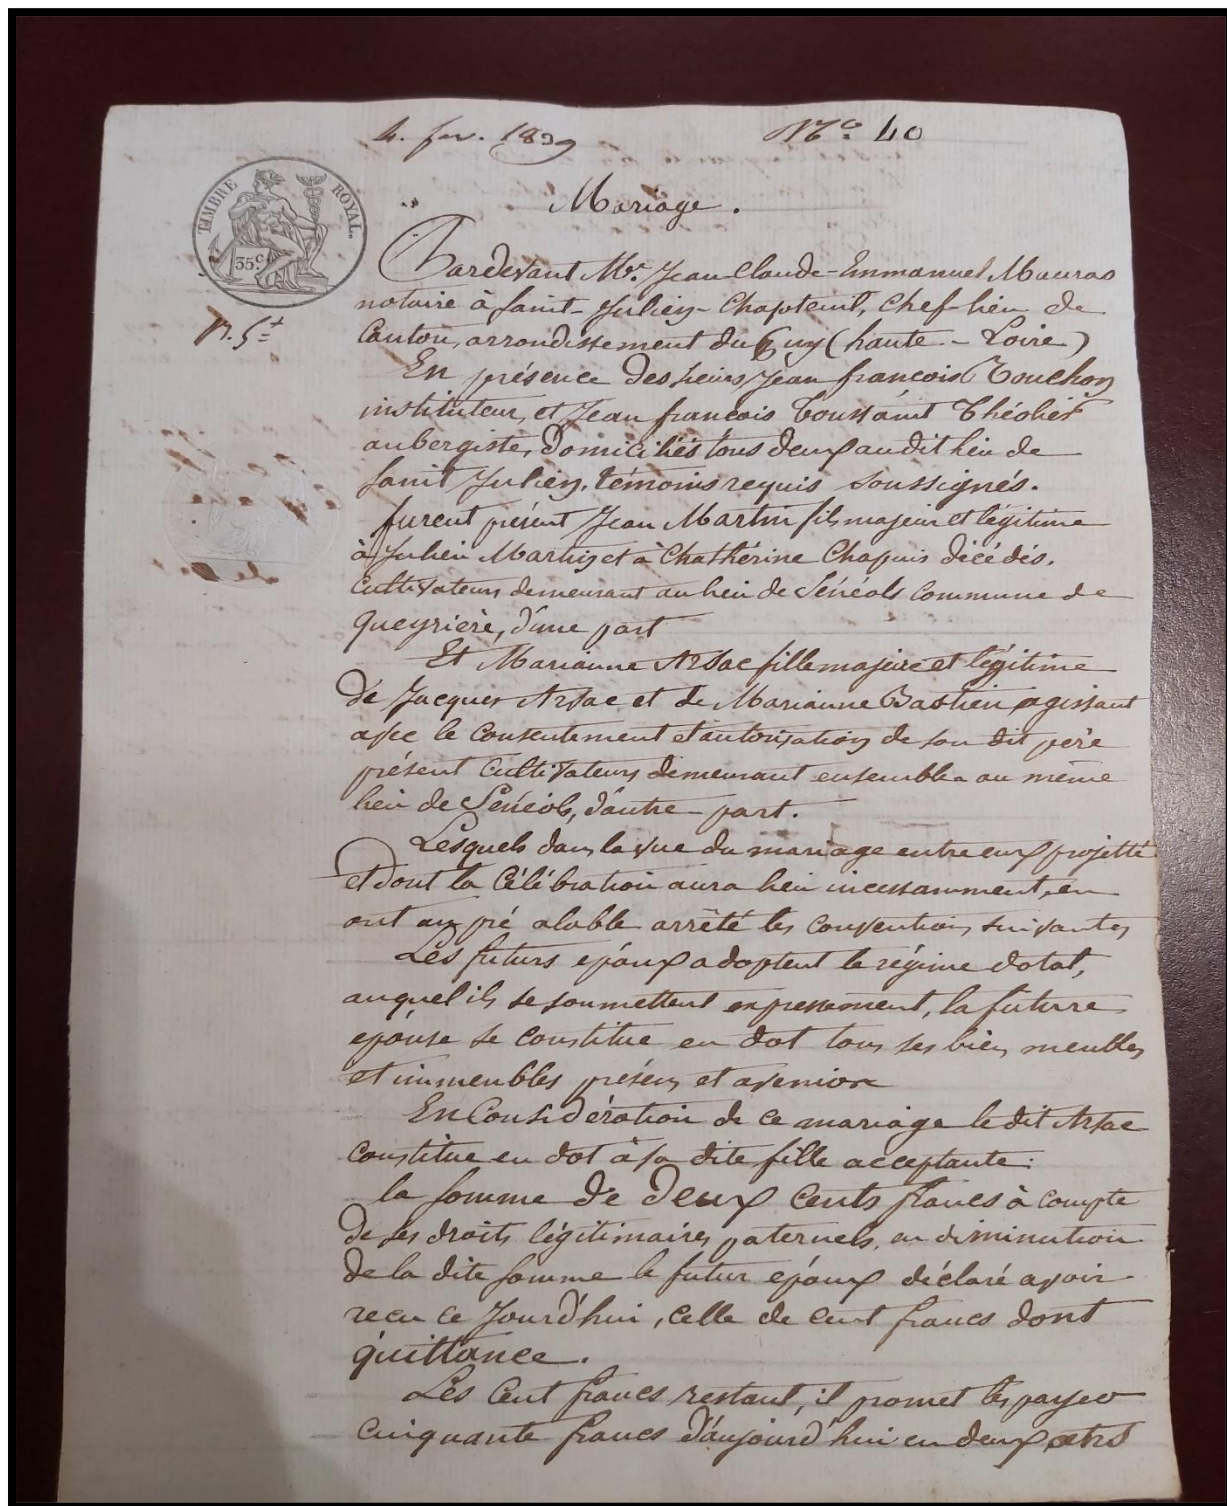 4. fev. 1839
N° 40
TIMBRE ROYAL.
35 c.
Mariage.
Pardevant Me. Jean-Claude-Emmanuel Mauras
notaire à Saint-Julien-Chapteuil, chef-lieu de
Canton, arrondissement du Puy (haute-Loire)
En présence des sieurs Jean françois Touchon
instituteur, et Jean françois Toussaint Théolier
aubergiste, Domiciliés tous deux audit lieu de
Saint Julien, témoins requis soussignés.
furent présent Jean Martin fils majeur et légitime
à Julien Martin et à Chathérine Chapuis décédés.
Cultivateurs demeurant au lieu de Sénéols commune de
queyrière, d'une part
Et Marianne Arsac fille majeure et légitime
de Jacques Arsac et de Marianne Bastien agissant
avec le consentement et autorisation de son dit père
présent cultivateurs demeurant ensemble au même
lieu de Sénéols, d'autre part.
Lesquels dans la vue du mariage entre eux projetté
et dont la célébration aura lieu incessamment, en
ont au pré alable arrêté les conventions suivantes
Les futurs époux adoptent le régime dotal,
auquel ils se soumettent expressement, la future
epouse se constitue en dot tous ses biens meubles
et immeubles présens et avenir
En Considération de ce mariage le dit Arsac
constitue en dot à sa dite fille acceptante:
la somme de deux cents francs à compte
de ses droits légitimaires paternels, en diminution
de la dite somme le futur époux déclaré avoir
recu ce Jourd'hui, celle de cent francs dont
quittance.
Les Cent francs restant, il promet les payer
cinquante francs d'aujourd'hui en deux